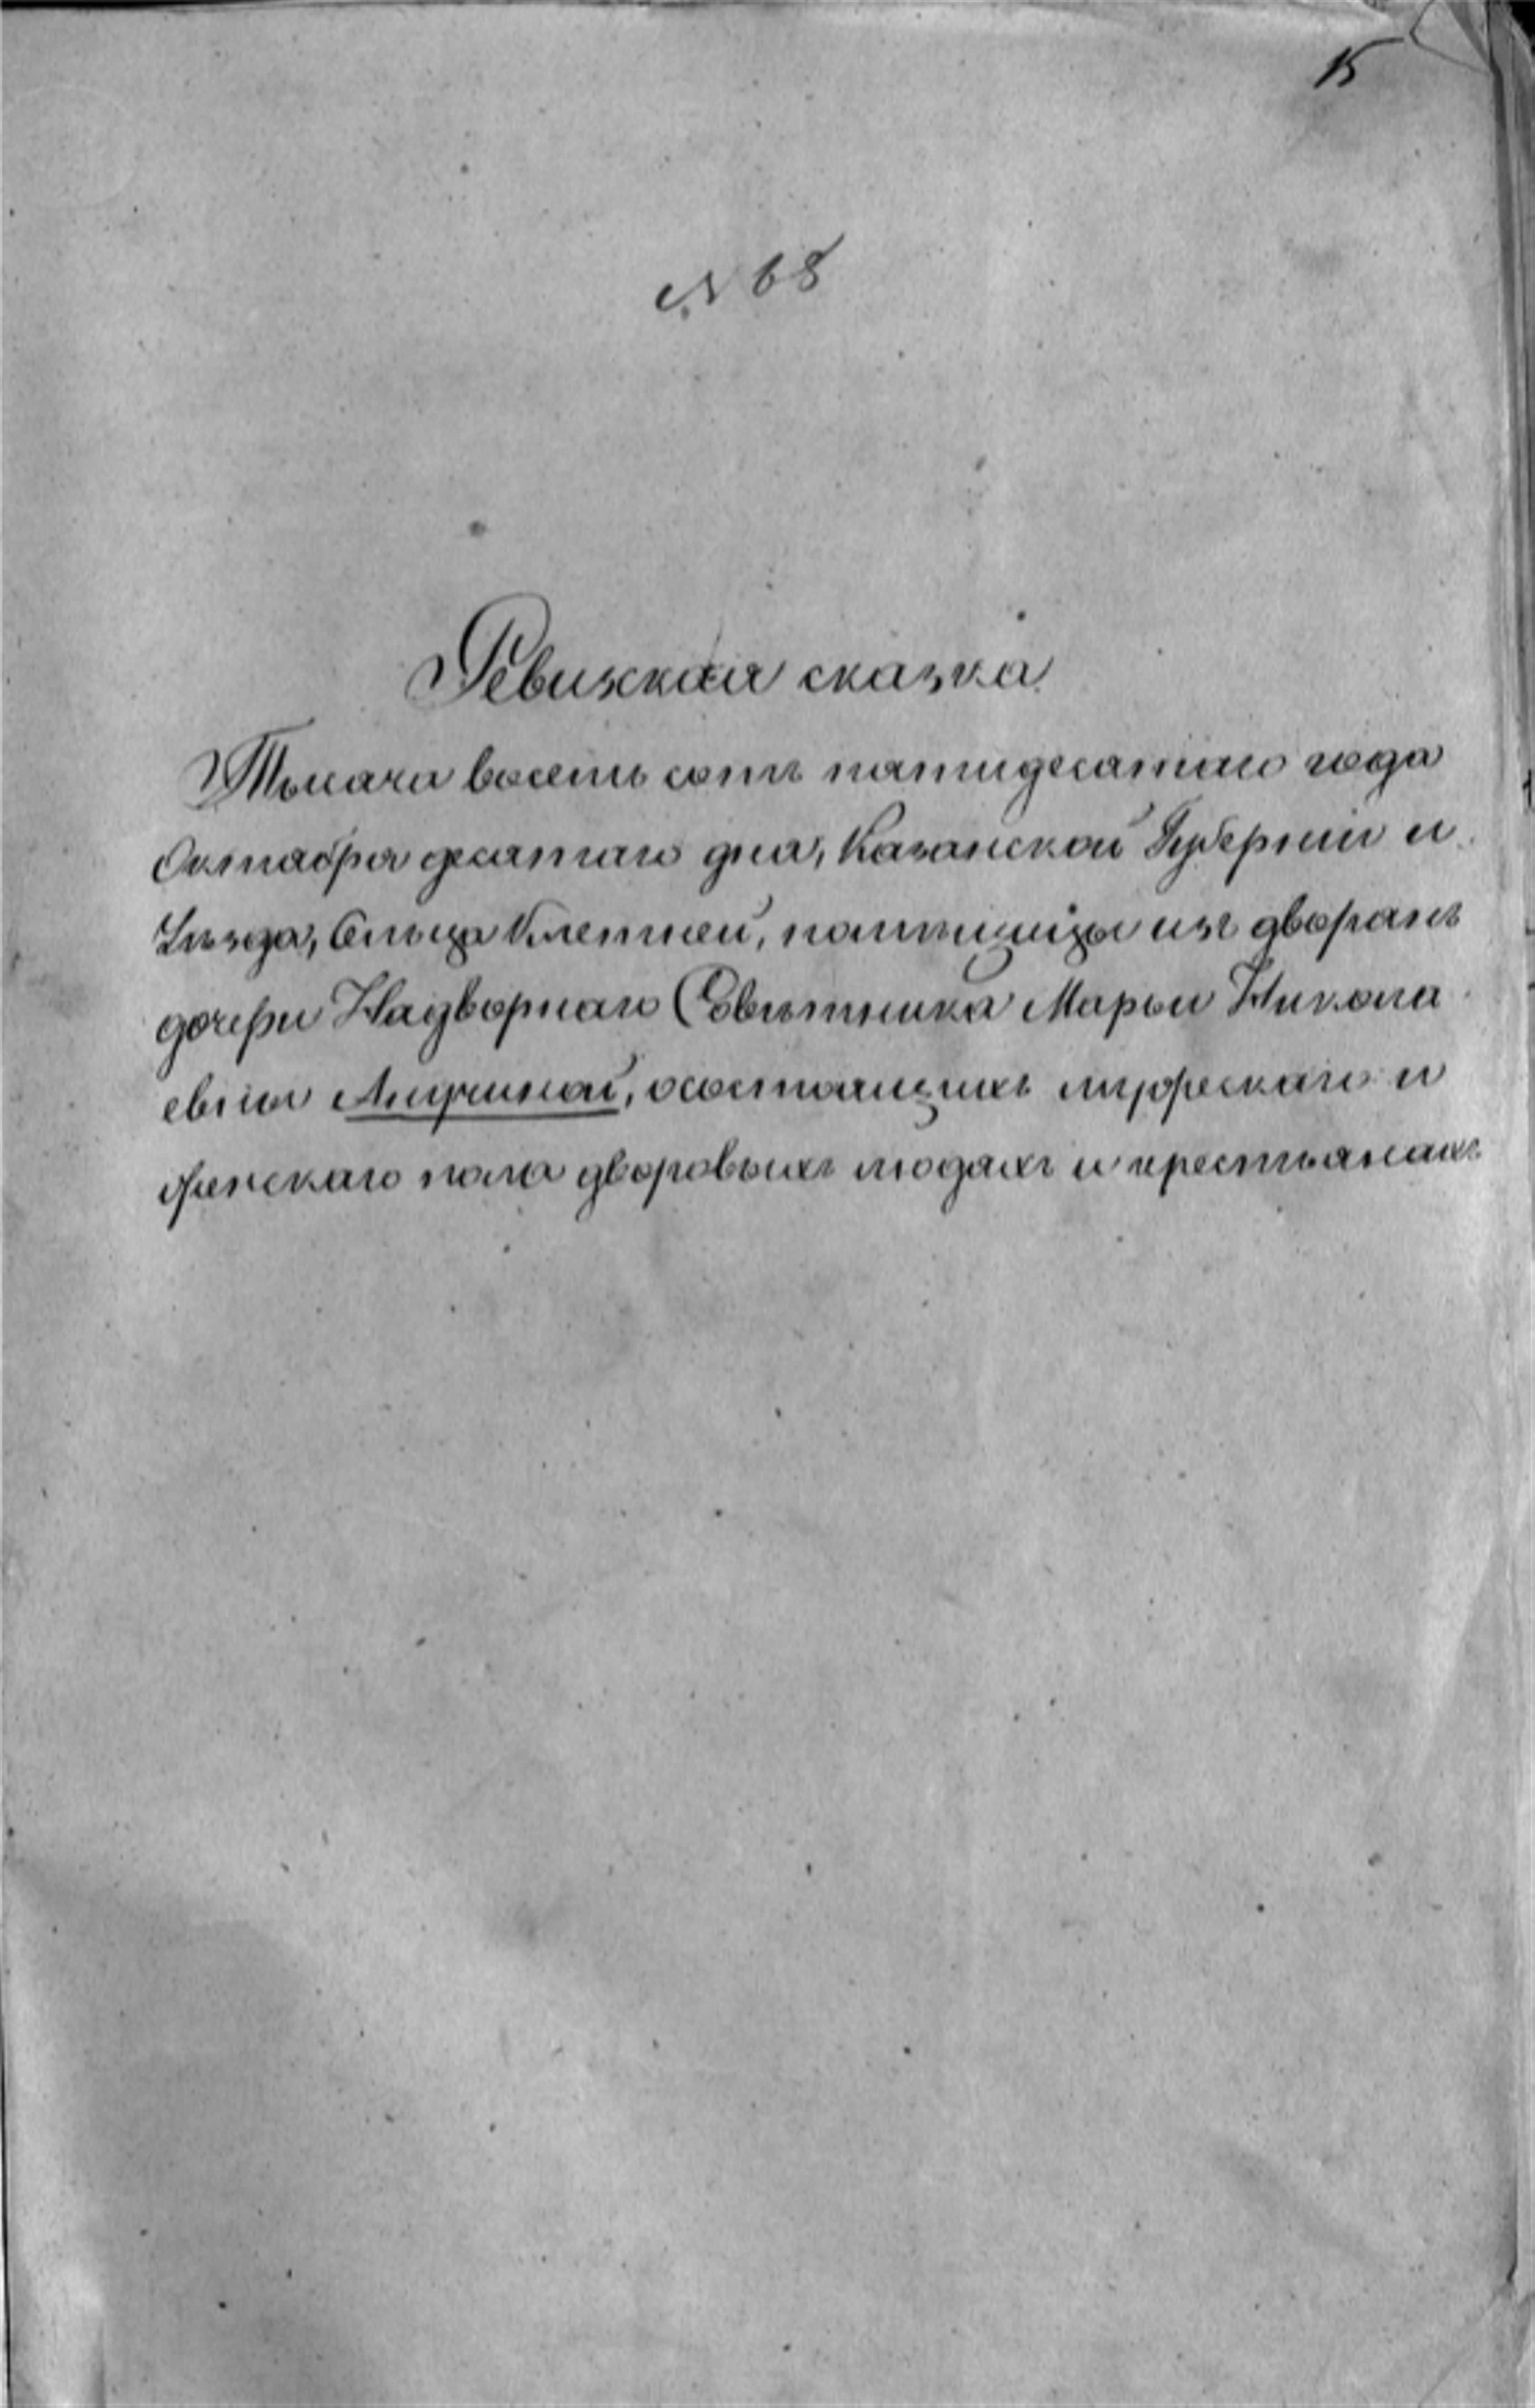 15
№ 68
Ревизская сказка
Тысяча восемь сотъ пятидесятаго года
Октября десятаго дня, Казанской Губерніи и
Уѣзда, Сельца помѣщицы изъ дворянъ
дочери Надворнаго Совѣтника Марьи Никола
евны о состоящихъ мужескаго и
женскаго пола дворовыхъ людяхъ и крестьянахъ